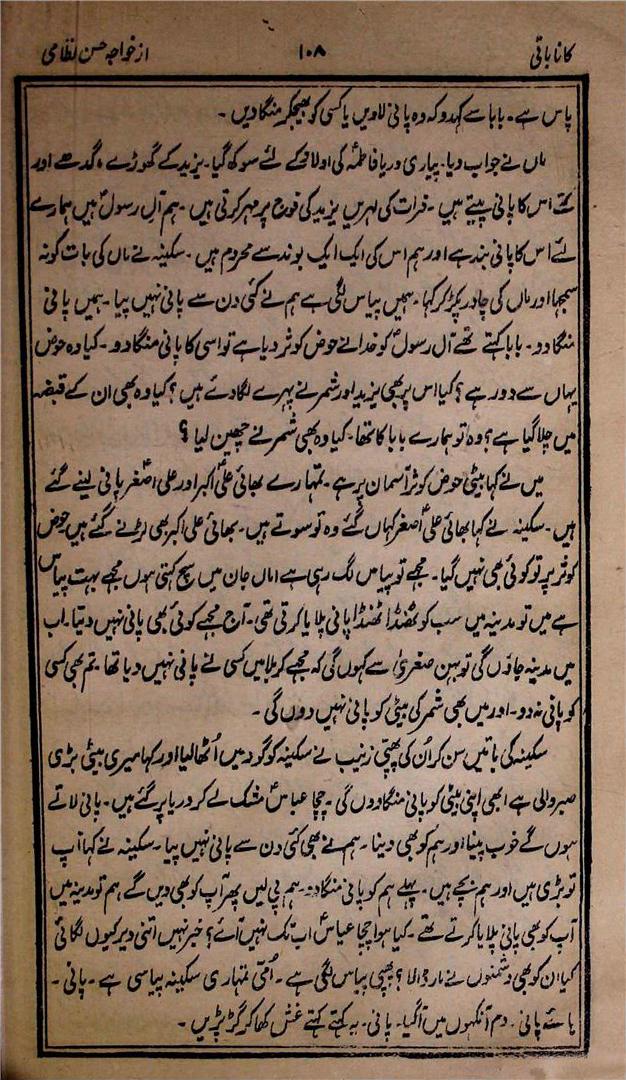 کانا باقی ۱۰۸ از خواجہ حسن نظامی
پاس ہے۔ بابا سے کہدو کہ وہ پانی لاویں یا کسی کو بھیجکر منگا دیں ۔
ماں نے جواب دیا۔ پیاری دریا فاطمہؑ کی اولاد کے لئے سوکھ گیا۔ یزید کے گھوڑے، گدھے اور
کتے اس کا پانی پیتے ہیں ۔ فرات کی لہریں یزید کی فوج پر مہر کرتی ہیں ۔ ہم آل رسولؐ ہیں ہمارے
لئے اس کا پانی بند ہے اور ہم اس کی ایک ایک بوند سے محروم ہیں ۔ سکینہ نے ماں کی بات کو نہ
سمجہا اور ماں کی چادر پکڑ کر کہا۔ ہمیں پیاس لگی ہے ہم نے کئی دن سے پانی نہیں پیا ۔ ہمیں پانی
منگا دو ۔ بابا کہتے تھے آل رسولؐ کو خدا نے حوض کوثر دیا ہے تو اسی کا پانی منگا دو ۔ کیا وہ حوض
یہاں سے دور ہے ؟ کیا اس پر بھی یزید اور شمر نے پہرے لگا دئے ہیں ؟ کیا وہ بھی ان کے قبضہ
میں چلا گیا ہے ؟ وہ تو ہمارے بابا کا تھا ۔ کیا وہ بھی شمر نے چھین لیا ؟
میں نے کہا بیٹی حوض کوثر آسمان پر ہے ۔ تمہارے بھائی علیؑ اکبر اور علی اصغرؑ پانی لینے گئے
ہیں ۔ سکینہ نے کہا بھائی علیؑ اصغر کہاں گئے وہ تو سوتے ہیں ۔ بھائی علی اکبر بھی لڑنے گئے ہیں حوض
کوثر پر تو کوئی بھی نہیں گیا ۔ مجھے تو پیاس لگ رہی ہے اماں جان میں سچ کہتی ہوں مجھے بہت پیاس
ہے میں تو مدینہ میں سب کو ٹھنڈا ٹھنڈا پانی پلایا کرتی تھی ۔ آج مجھے کوئی بھی پانی نہیں دیتا ۔ اب
میں مدینہ جاؤں گی تو بہن صغریٰ سے کہوں گی کہ مجھے کربلا میں کسی نے پانی نہیں دیا تھا ۔ تم بھی کسی
کو پانی نہ دو ۔ اور میں بھی شمر کی بیٹی کو پانی نہیں دوں گی ۔
سکینہ کی باتیں سن کر اُن کی پھپی زینب نے سکینہ کو گود میں اُٹھا لیا اور کہا میری بیٹی بڑی
صبر والی ہے ابھی اپنی بیٹی کو پانی منگا دوں گی ۔ چچا عباسؑ مشک لے کر دریا پر گئے ہیں ۔ پانی لاتے
ہوں گے خوب پینا اور ہم کو بھی دینا ۔ ہم نے بھی کئی دن سے پانی نہیں پیا ۔ سکینہ نے کہا آپ
تو بڑی ہیں اور ہم بچے ہیں ۔ پہلے ہم کو پانی منگا دو ۔ ہم پی لیں پھر آپ کو بھی دیں گے ہم تو مدینہ میں
آپ کو بھی پانی پلایا کرتے تھے ۔ کیا ہوا چچا عباسؑ اب تک نہیں آئے ؟ خبر نہیں اتنی دیر کیوں لگائی
کیا ان کو بھی دشمنوں نے مار ڈالا ؟ پھپی پیاس لگی ہے ۔ اُمّی تمہاری سکینہ پیاسی ہے ۔ پانی ۔
ہائے پانی ۔ دم آنکہوں میں آگیا ۔ پانی ۔ یہ کہتے کہتے غش کھا کر گر پڑیں ۔